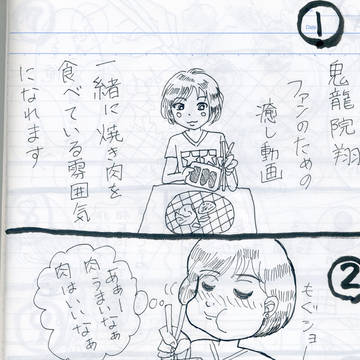 1
鬼龍院翔
ファンのための
癒し動画
一緒に焼き肉を
食べている雰囲気
になれます
2
もぐショー
あぁ
肉うまいなぁ
肉はいいなぁ